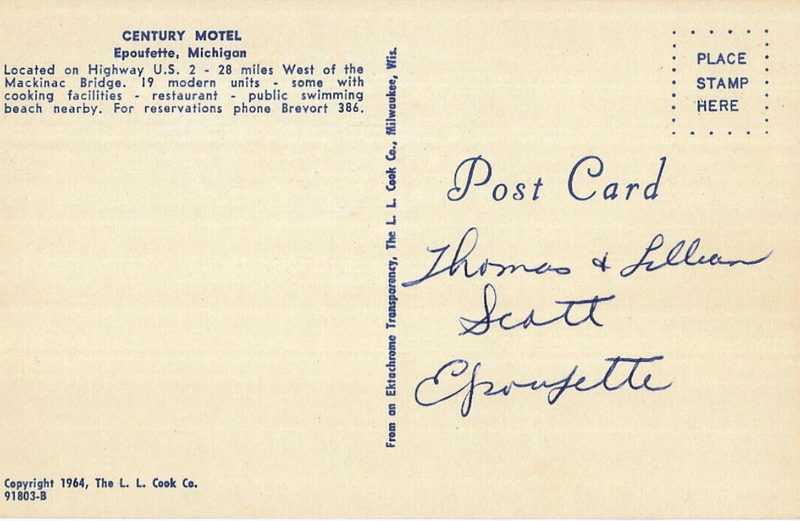 CENTURY MOTEL
Epoufette, Michigan
Located on Highway U.S. 2 - 28 miles West of the
Mackinac Bridge. 19 modern units - some with
cooking facilities - restaurant - public swimming
beach nearby. For reservations phone Brevort 386.
From an Ektachrome Transparency, The L. L. Cook Co., Milwaukee, Wis.
PLACE
STAMP
HERE
Post Card
Thomas & Lillian
Scott
Epoufette
Copyright 1964, The L. L. Cook Co.
91803-B